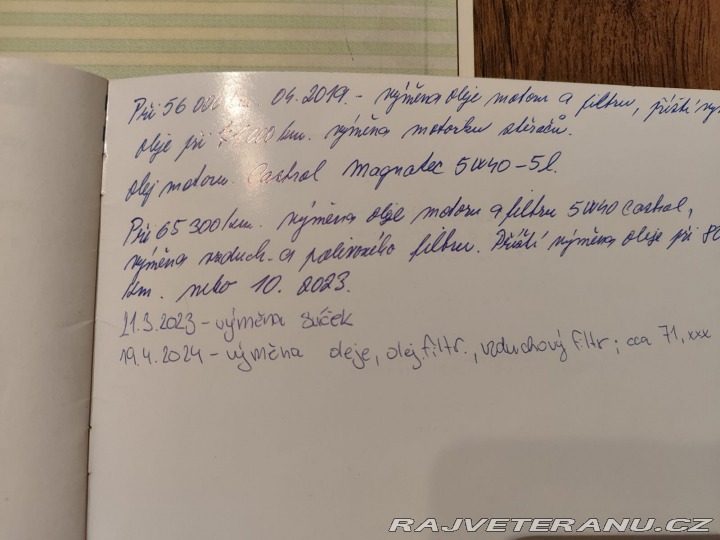 Při 56 000 km. 04.2019. - výměna oleje motoru a filtru, příští vý
oleje při 000 km. výměna motorku stěračů.
olej motoru. Castrol Magnatec 5W40-5l.
Při 65 300 km. výměna oleje motoru a filtru 5W40 Castrol,
výměna vzduch. a palivového filtru. Příští výměna oleje při 80
km. nebo 10. 2023.
21.3.2023 - výměna svíček
19.4.2024 - výměna oleje, olej.filtr., vzduchový filtr; cca 71,xxx
RAJVETERANU.CZ